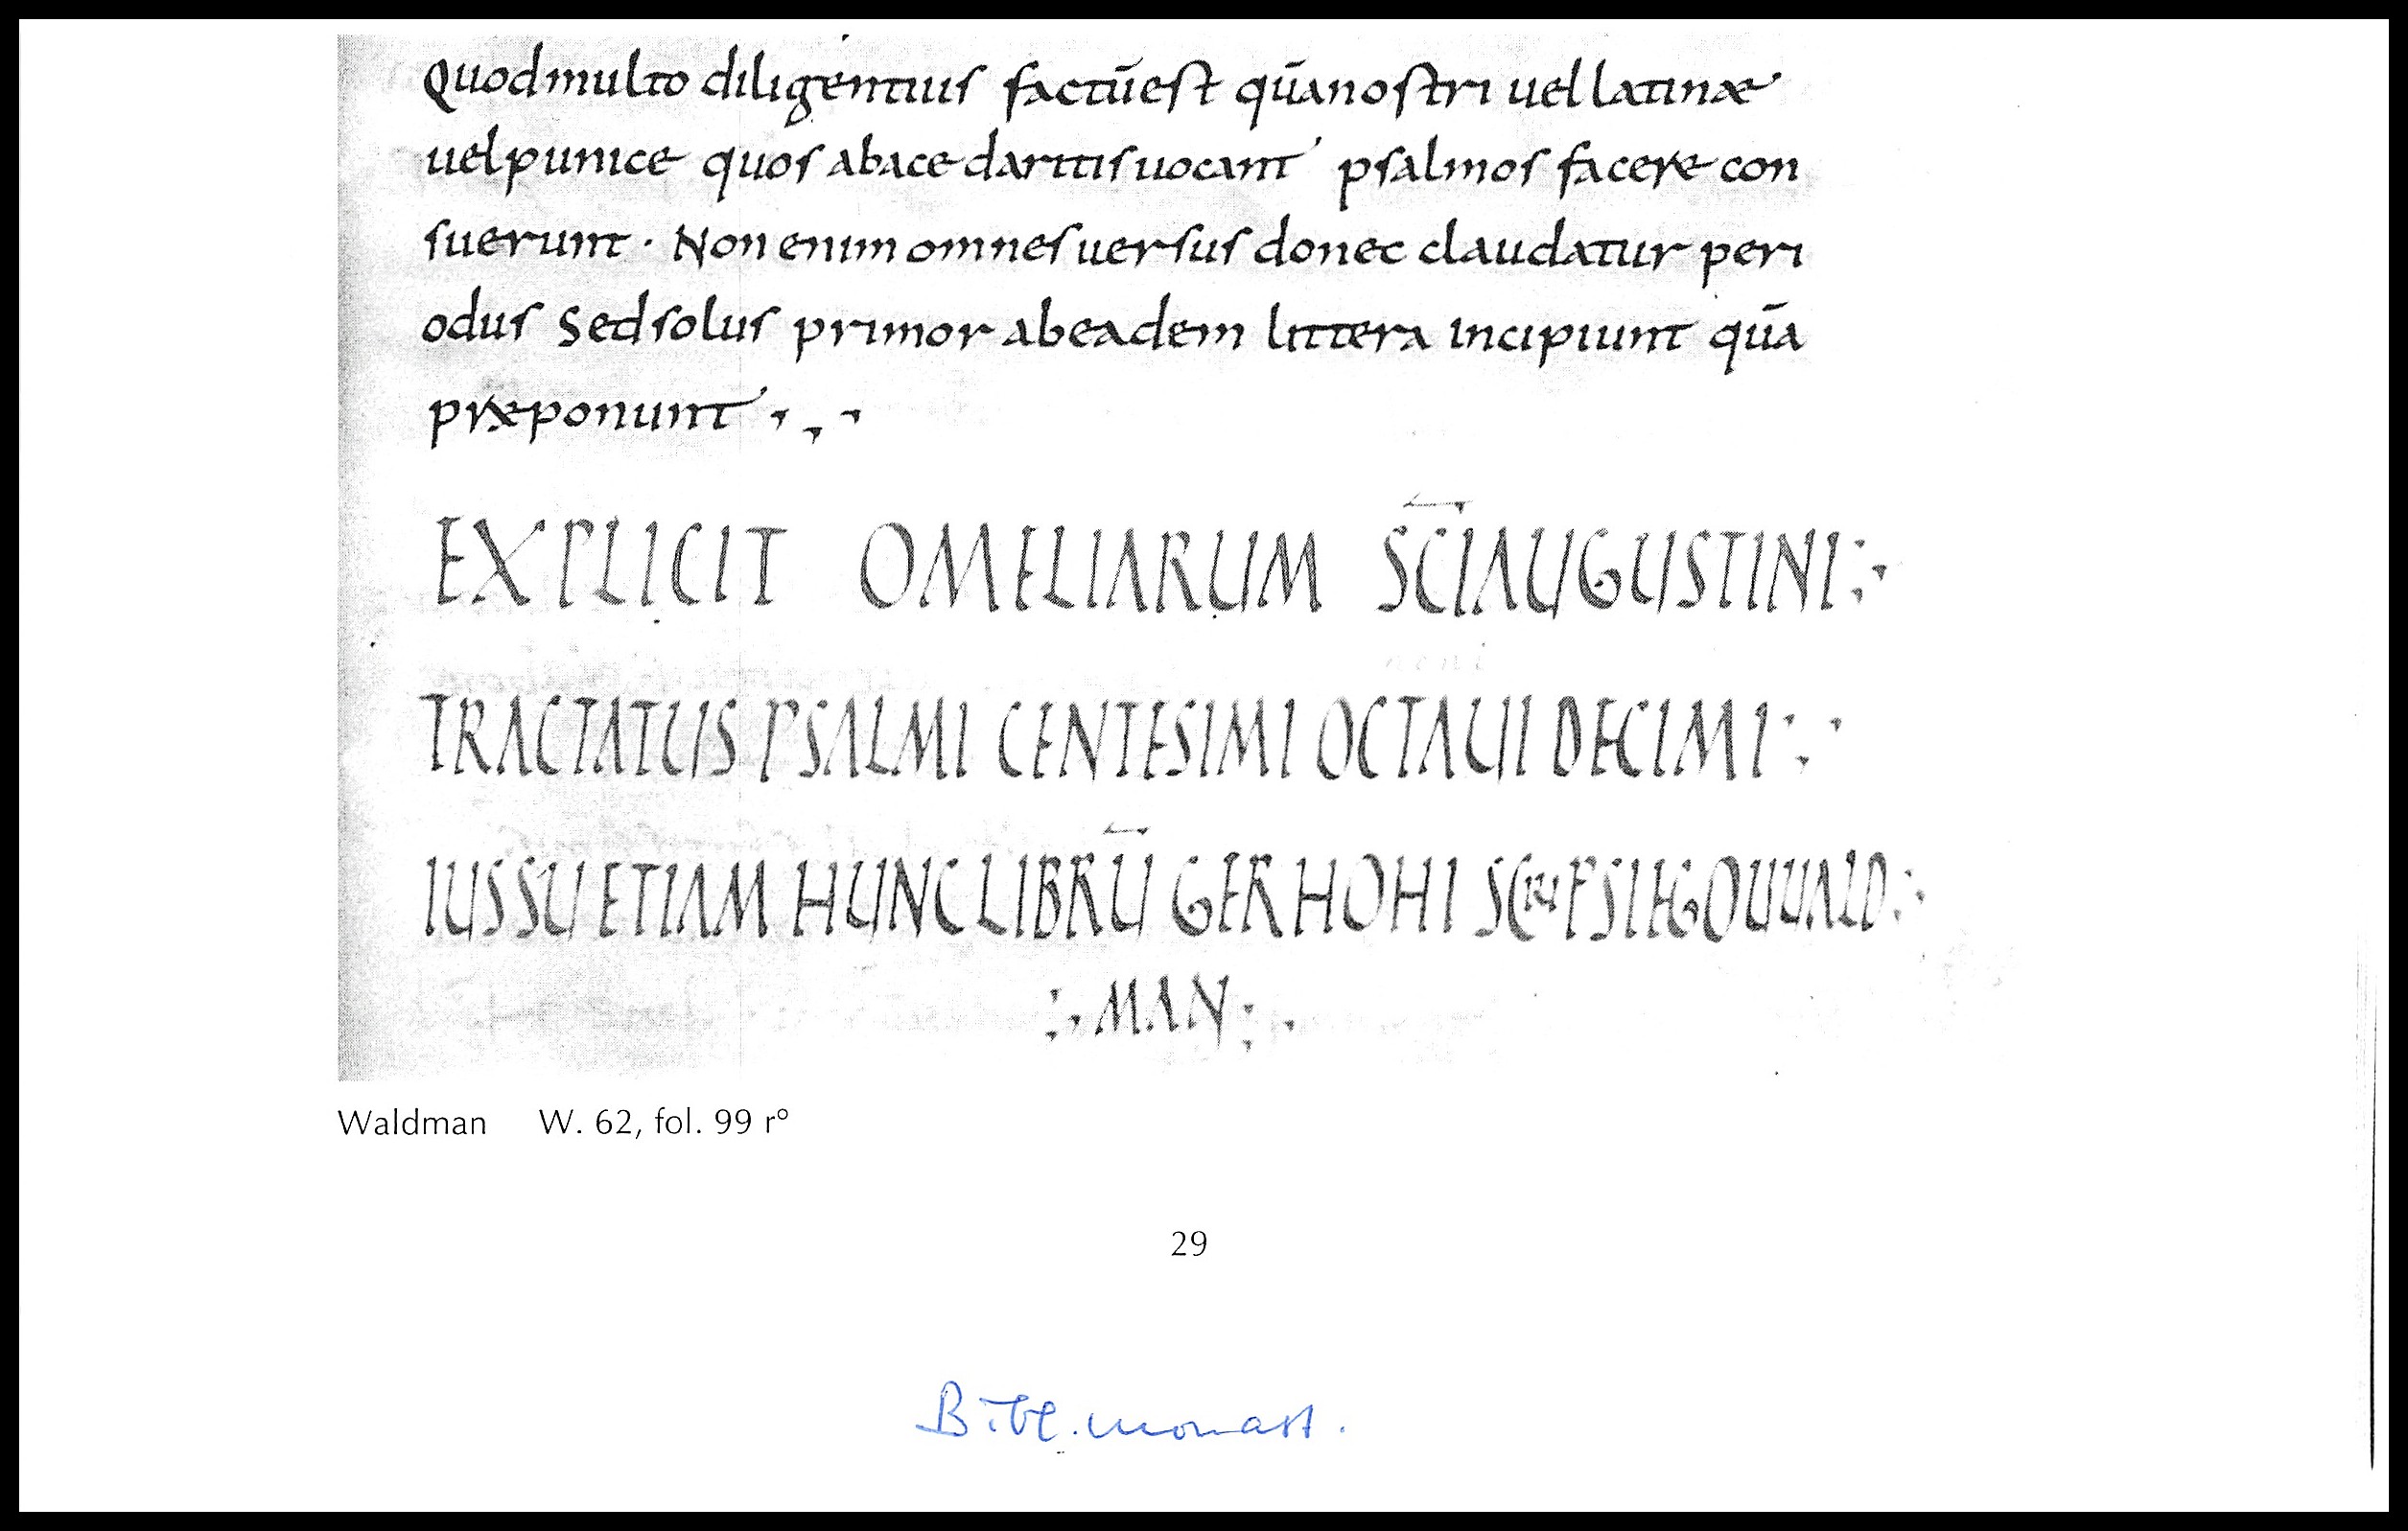 Quod multo diligentius factū est quā nostri uel latinæ
uel punice quos abacedarttis uocant psalmos facere con
suerunt · Non enim omnes uersus donec claudatur peri
odus Sed solus primor ab eadem littera incipiunt quā
præponunt
EXPLICIT OMELIARUM SC̄I AUGUSTINI
TRACTATUS PSALMI CENTESIMI OCTAUI DECIMI
IUSSU ETIAM HUNC LIBRŪ GERHOHI
MAN
Waldman W. 62, fol. 99 rº
29
Bibl. monast.